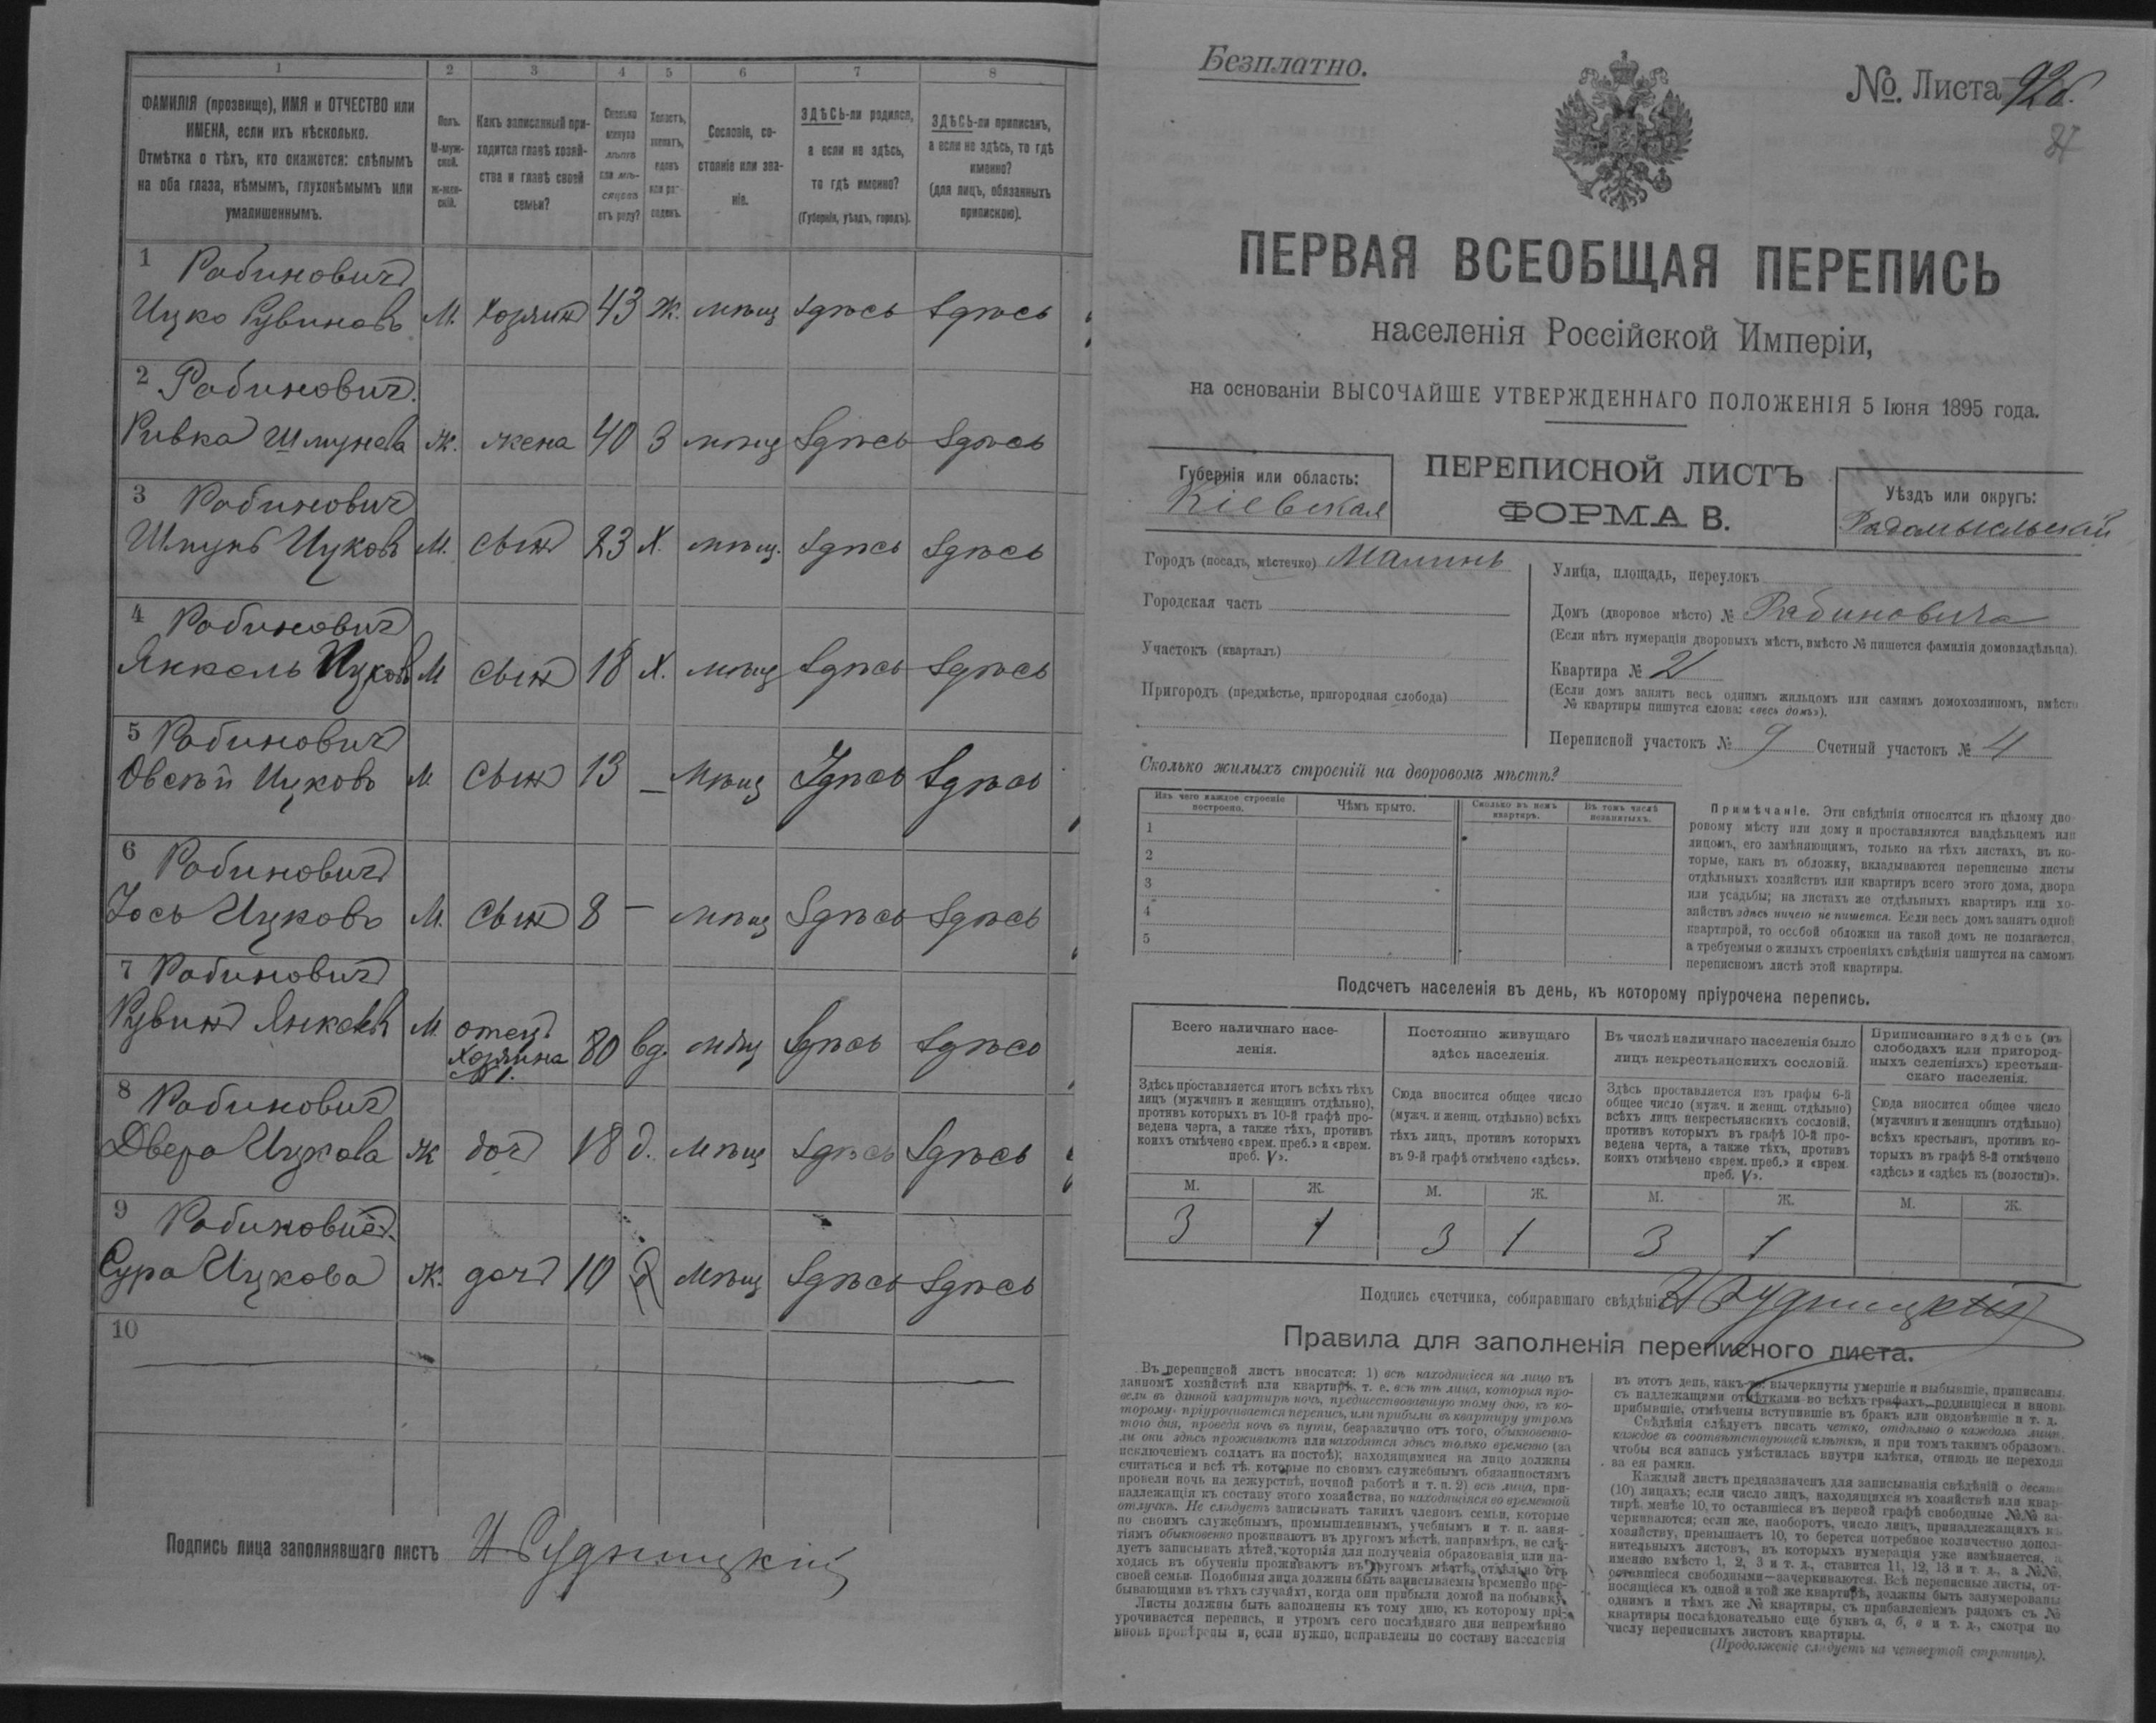 1 2 3 4 5 6 7 8
ФАМИЛІЯ (прозвище), ИМЯ и ОТЧЕСТВО или
ИМЕНА, если ихъ нѣсколько.
Отмѣтка о тѣхъ, кто окажется: слѣпымъ
на оба глаза, нѣмымъ, глухонѣмымъ или
умалишеннымъ.
Полъ.
М-муж-
ской.
ж-жен-
скій.
Какъ записанный при-
ходится главѣ хозяй-
ства и главѣ своей
семьи?
Сколько
минуло
лѣтъ
или мѣ-
сяцевъ
отъ роду?
Холостъ,
женатъ,
вдовъ
или раз-
веденъ.
Сословіе, со-
стояніе или зва-
ніе.
ЗДѢСЬ-ли родился,
а если не здѣсь,
то гдѣ именно?
(Губернія, уѣздъ, городъ).
ЗДѢСЬ-ли приписанъ,
а если не здѣсь, то гдѣ
именно?
(для лицъ, обязанныхъ
припискою).
1 Рабиновичъ
Ицко Рувиновъ М. хозяинъ 43 Ж. мѣщ здѣсь здѣсь
2 Рабиновичъ
Ривка Шмунева Ж. жена 40 З мѣщ здѣсь здѣсь
3 Рабиновичъ
Ицковъ М. сынъ 23 Х. мѣщ. здѣсь здѣсь
4 Рабиновичъ
Янкель Ицковъ М сынъ 18 Х. мѣщ здѣсь здѣсь
5 Рабиновичъ
Овсѣй Ицковъ М. сынъ 13 — мѣщ здѣсь здѣсь
6 Рабиновичъ
Іось Ицковъ М. сынъ 8 — мѣщ здѣсь здѣсь
7 Рабиновичъ
Рувинъ Янкелев М. отецъ хозяина №1. 80 вд. мѣщ здѣсь здѣсь
8 Рабиновичъ
Двера Ицкова Ж доч 18 д. мѣщ здѣсь здѣсь
9 Рабиновичъ
Сура Ицкова Ж. доч 10 д мѣщ здѣсь здѣсь
10
Подпись лица заполнявшаго листъ И Рудницкій
Безплатно.
№. Листа 92б.
ПЕРВАЯ ВСЕОБЩАЯ ПЕРЕПИСЬ
населенія Россійской Имперіи,
на основаніи ВЫСОЧАЙШЕ УТВЕРЖДЕННАГО ПОЛОЖЕНІЯ 5 Іюня 1895 года.
Губернія или область:
Кіевская
ПЕРЕПИСНОЙ ЛИСТЪ
ФОРМА В.
Уѣздъ или округъ:
Радомысльскій
Городъ (посадъ, мѣстечко) Малинъ
Городская часть
Участокъ (кварталъ)
Пригородъ (предмѣстье, пригородная слобода)
Улица, площадь, переулокъ
Домъ (дворовое мѣсто) № Рабиновича
(Если нѣтъ нумераціи дворовыхъ мѣстъ, вмѣсто № пишется фамилія домовладѣльца).
Квартира № 2
(Если домъ занятъ весь однимъ жильцомъ или самимъ домохозяиномъ, вмѣсто
№ квартиры пишутся слова: «весь домъ»).
Переписной участокъ № 9 Счетный участокъ № 4
Сколько жилыхъ строеній на дворовомъ мѣстѣ?
Изъ чего каждое строеніе
построено.
Чѣмъ крыто.
Сколько въ немъ
квартиръ.
Въ томъ числѣ
незанятыхъ.
1
2
3
4
5
Примѣчаніе. Эти свѣдѣнія относятся къ цѣлому дво-
ровому мѣсту или дому и проставляются владѣльцемъ или
лицомъ, его замѣняющимъ, только на тѣхъ листахъ, въ ко-
торые, какъ въ обложку, вкладываются переписные листы
отдѣльныхъ хозяйствъ или квартиръ всего этого дома, двора
или усадьбы; на листахъ же отдѣльныхъ квартиръ или хо-
зяйствъ здѣсь ничего не пишется. Если весь домъ занятъ одной
квартирой, то особой обложки на такой домъ не полагается,
а требуемыя о жилыхъ строеніяхъ свѣдѣнія пишутся на самомъ
переписномъ листѣ этой квартиры.
Подсчетъ населенія въ день, къ которому пріурочена перепись.
Всего наличнаго насе-
ленія.
Здѣсь проставляется итогъ всѣхъ тѣхъ
лицъ (мужчинъ и женщинъ отдѣльно),
противъ которыхъ въ 10-й графѣ про-
ведена черта, а также тѣхъ, противъ
коихъ отмѣчено «врем. преб.» и «врем.
преб. V».
М. Ж.
3 1
Постоянно живущаго
здѣсь населенія.
Сюда вносится общее число
(мужч. и женщ. отдѣльно) всѣхъ
тѣхъ лицъ, противъ которыхъ
въ 9-й графѣ отмѣчено «здѣсь».
М. Ж.
3 1
Въ числѣ наличнаго населенія было
лицъ некрестьянскихъ сословій.
Здѣсь проставляется изъ графы 6-й
общее число (мужч. и женщ. отдѣльно)
всѣхъ лицъ некрестьянскихъ сословій,
противъ которыхъ въ графѣ 10-й про-
ведена черта, а также тѣхъ, противъ
коихъ отмѣчено «врем. преб.» и «врем.
преб. V».
М. Ж.
3 1
Приписаннаго здѣсь (въ
слободахъ или пригород-
ныхъ селеніяхъ) крестьян-
скаго населенія.
Сюда вносится общее число
(мужчинъ и женщинъ отдѣльно)
всѣхъ крестьянъ, противъ ко-
торыхъ въ графѣ 8-й отмѣчено
«здѣсь» и «здѣсь къ (волости)».
М. Ж.
Подпись счетчика, собиравшаго свѣдѣнія И Рудницкій
Правила для заполненія переписного листа.
Въ переписной листъ вносятся: 1) всѣ находящіеся на лицо въ
данномъ хозяйствѣ или квартирѣ, т. е. всѣ тѣ лица, которыя про-
вели въ данной квартирѣ ночь, предшествовавшую тому дню, къ ко-
торому пріурочивается перепись, или прибыли въ квартиру утромъ
того дня, проведя ночь въ пути, безразлично отъ того, обыкновенно-
ли они здѣсь проживаютъ или находятся здѣсь только временно (за
исключеніемъ солдатъ на постоѣ); находящимися на лицо должны
считаться и всѣ тѣ, которые по своимъ служебнымъ обязанностямъ
провели ночь на дежурствѣ, ночной работѣ и т. п. 2) всѣ лица, при-
надлежащія къ составу этого хозяйства, но находящіяся во временной
отлучкѣ. Не слѣдуетъ записывать такихъ членовъ семьи, которые
по своимъ служебнымъ, промышленнымъ, учебнымъ и т. п. заня-
тіямъ обыкновенно проживаютъ въ другомъ мѣстѣ, напримѣръ, не слѣ-
дуетъ записывать дѣтей, которыя для полученія образованія или на-
ходясь въ обученіи проживаютъ въ другомъ мѣстѣ, отдѣльно отъ
своей семьи. Подобныя лица должны быть записываемы временно пре-
бывающими въ тѣхъ случаяхъ, когда они прибыли домой на побывку.
Листы должны быть заполнены къ тому дню, къ которому прі-
урочивается перепись, и утромъ сего послѣдняго дня непремѣнно
вновь провѣрены и, если нужно, исправлены по составу населенія
въ этотъ день, какъ-то: вычеркнуты умершіе и выбывшіе, приписаны
съ надлежащими отмѣтками во всѣхъ графахъ родившіеся и вновь
прибывшіе, отмѣчены вступившіе въ бракъ или овдовѣвшіе и т. д.
Свѣдѣнія слѣдуетъ писать четко, отдѣльно о каждомъ лицѣ,
каждое въ соотвѣтствующей клѣткѣ, и при томъ такимъ образомъ,
чтобы вся запись умѣстилась внутри клѣтки, отнюдь не переходя
за ея рамки.
Каждый листъ предназначенъ для записыванія свѣдѣній о десяти
(10) лицахъ; если число лицъ, находящихся въ хозяйствѣ или квар-
тирѣ, менѣе 10, то оставшіеся въ первой графѣ свободные №№ за-
черкиваются; если же, наоборотъ, число лицъ, принадлежащихъ къ
хозяйству, превышаетъ 10, то берется потребное количество допол-
нительныхъ листовъ, въ которыхъ нумерація уже измѣняется, а
именно вмѣсто 1, 2, 3 и т. д., ставится 11, 12, 13 и т. д., а №№,
оставшіеся свободными—зачеркиваются. Всѣ переписные листы, от-
носящіеся къ одной и той же квартирѣ, должны быть занумерованы
однимъ и тѣмъ же № квартиры, съ прибавленіемъ рядомъ съ №
квартиры послѣдовательно еще буквъ а, б, в и т. д., смотря по
числу переписныхъ листовъ квартиры.
(Продолженіе слѣдуетъ на четвертой страницѣ).